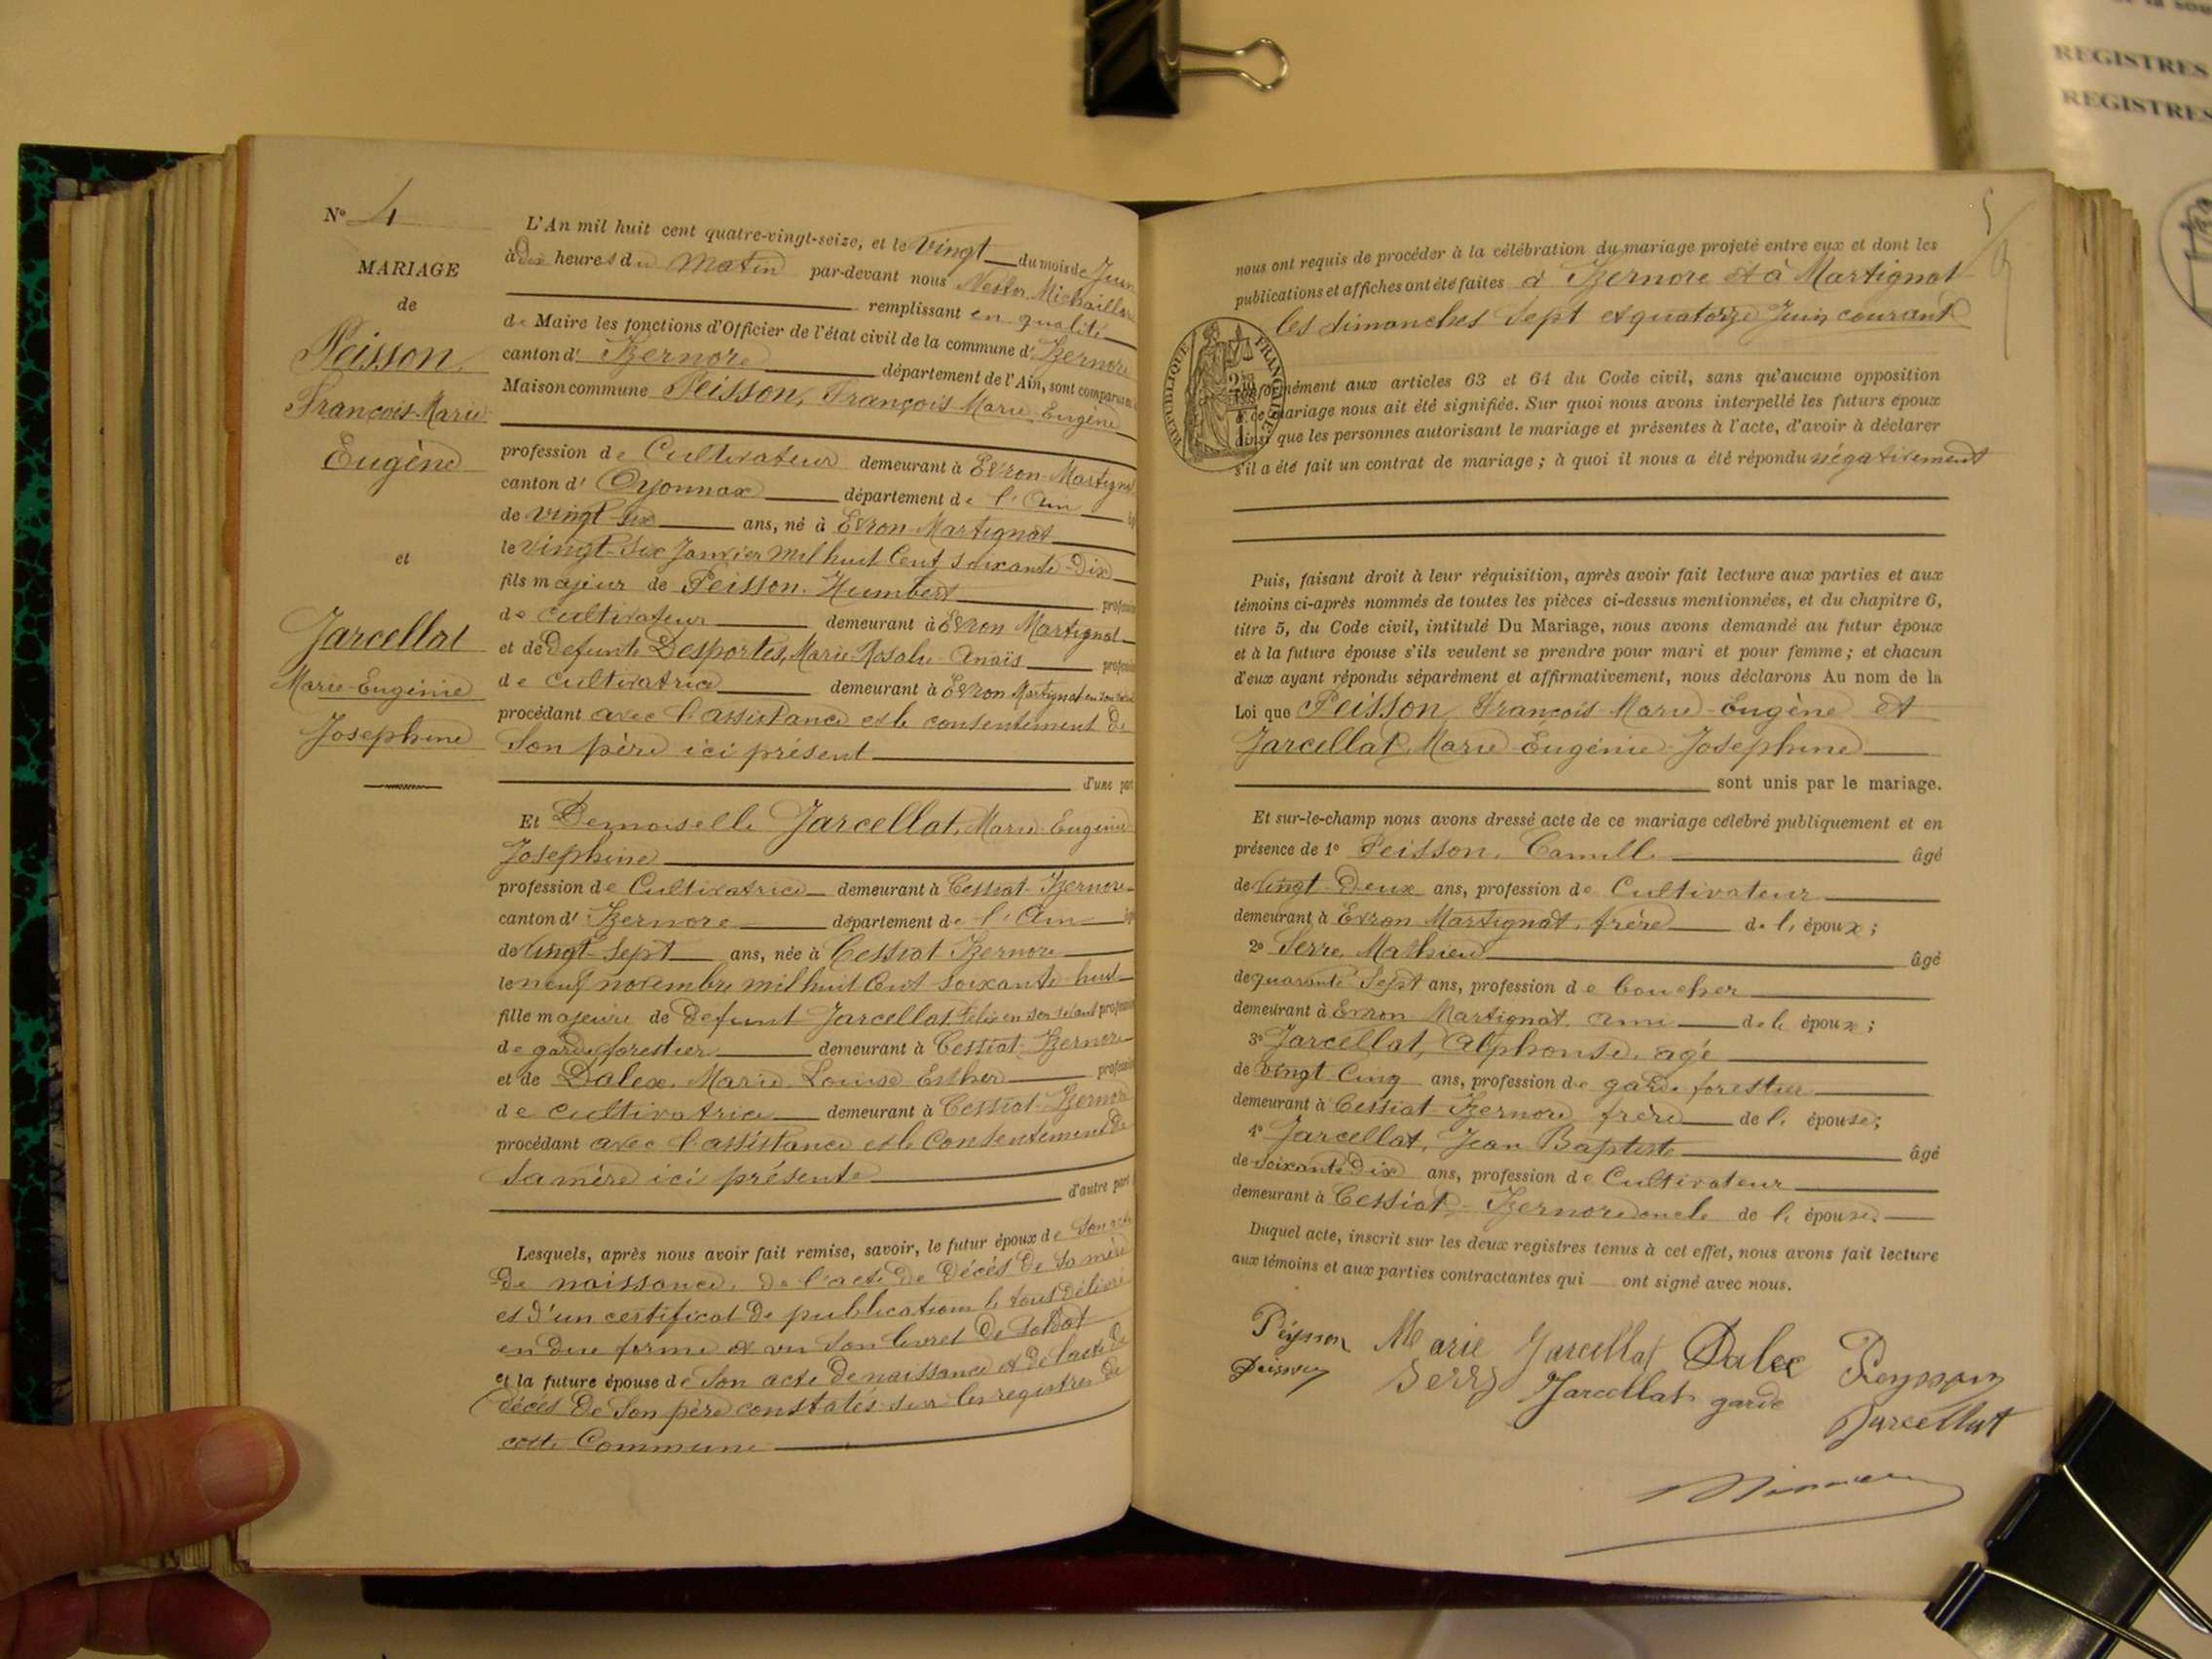 N° 4
MARIAGE
de
Peisson
François-Marie
Eugène
et
Jarcellat
Marie-Eugénie
Josephine
L'An mil huit cent quatre-vingt-seize, et le Vingt du mois de Juin
à dix heures du Matin par-devant nous Nestor
remplissant en qualité
de Maire les fonctions d'Officier de l'état civil de la commune d' Izernore
canton d' Izernore département de l'Ain, sont comparus en
Maison commune Peisson, François Marie Eugène
profession de Cultivateur demeurant à Evron-Martignat
canton d' Oyonnax département de l'Ain
de vingt-six ans, né à Evron-Martignat
le Vingt-Six Janvier mil huit Cent soixante-Dix
fils majeur de Peisson. Humbert profession
de cultivateur demeurant à Evron Martignat
et de defunte Desportes, Marie Rosalie Anaïs profession
de cultivatrice demeurant à Evron Martignat en son vivant
procédant avec l'assistance et le consentement de
Son père ici présent
d'une part
Et Demoiselle Jarcellat, Marie-Eugénie
Josephine
profession de Cultivatrice demeurant à Cessiat-Izernore
canton d' Izernore département de l'Ain
de vingt-sept ans, née à Cessiat Izernore
le neuf novembre mil huit Cent soixante huit
fille majeure de Defunt Jarcellat Félix en son vivant profession
de garde forestier demeurant à Cessiat-Izernore
et de Dalex. Marie Louise Esther profession
de cultivatrice demeurant à Cessiat-Izernore
procédant avec l'assistance et le Consentement de
Sa mère ici présente
d'autre part
Lesquels, après nous avoir fait remise, savoir, le futur époux de son acte
de naissance, de l'acte de décès de sa mère
et d'un certificat de publications le tout délivré
en due forme et vu son livret de Soldat
et la future épouse de Son acte de naissance et de l'acte de
décés de Son père constatés sur les registres de
cette Commune
5
nous ont requis de procéder à la célébration du mariage projeté entre eux et dont les
publications et affiches ont été faites à Izernore et à Martignat
les dimanches Sept et quatorze Juin courant
REPUBLIQUE FRANÇAISE
conformément aux articles 63 et 64 du Code civil, sans qu'aucune opposition
à ce mariage nous ait été signifiée. Sur quoi nous avons interpellé les futurs époux
ainsi que les personnes autorisant le mariage et présentes à l'acte, d'avoir à déclarer
s'il a été fait un contrat de mariage ; à quoi il nous a été répondu négativement
Puis, faisant droit à leur réquisition, après avoir fait lecture aux parties et aux
témoins ci-après nommés de toutes les pièces ci-dessus mentionnées, et du chapitre 6,
titre 5, du Code civil, intitulé Du Mariage, nous avons demandé au futur époux
et à la future épouse s'ils veulent se prendre pour mari et pour femme ; et chacun
d'eux ayant répondu séparément et affirmativement, nous déclarons Au nom de la
Loi que Peisson, François-Marie-Eugène et
Jarcellat, Marie Eugénie Josephine
sont unis par le mariage.
Et sur-le-champ nous avons dressé acte de ce mariage célébré publiquement et en
présence de 1° Peisson, Camille âgé
de vingt-Deux ans, profession de Cultivateur
demeurant à Evron Martignat, frère de l'époux ;
2° Serre, Mathieu âgé
de quarante Sept ans, profession de boucher
demeurant à Evron Martignat, ami de l'époux ;
3° Jarcellat, Alphonse, agé
de vingt-Cinq ans, profession de garde forestier
demeurant à Cessiat-Izernore, frère de l'épouse ;
4° Jarcellat, Jean Baptiste âgé
de soixante Dix ans, profession de Cultivateur
demeurant à Cessiat-Izernore oncle de l'épouse.
Duquel acte, inscrit sur les deux registres tenus à cet effet, nous avons fait lecture
aux témoins et aux parties contractantes qui ont signé avec nous.
Marie Jarcellat Dalex
Jarcellat garde
Jarcellat
REGISTRES
REGISTRES